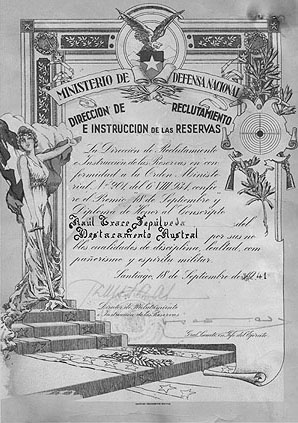 MINISTERIO DE DEFENSA NACIONAL
DIRECCION DE RECLUTAMIENTO
E INSTRUCCION DE LAS RESERVAS
La Dirección de Reclutamiento
e Instrucción de las Reservas en con-
formidad a la Orden Ministe-
rial N° 901 del 6 VIII 931, confie-
re el Premio 18 de Septiembre y
Diploma de Honor al Conscripto
Raúl Sepúlveda del
Destacamento Austral por sus no-
bles cualidades de disciplina, lealtad, com-
pañerismo y espíritu militar.
Santiago, 18 de Septiembre de 1941
Director de Reclutamiento
e Instrucción de las Reservas
Gral. Comdte. en Jefe del Ejército.